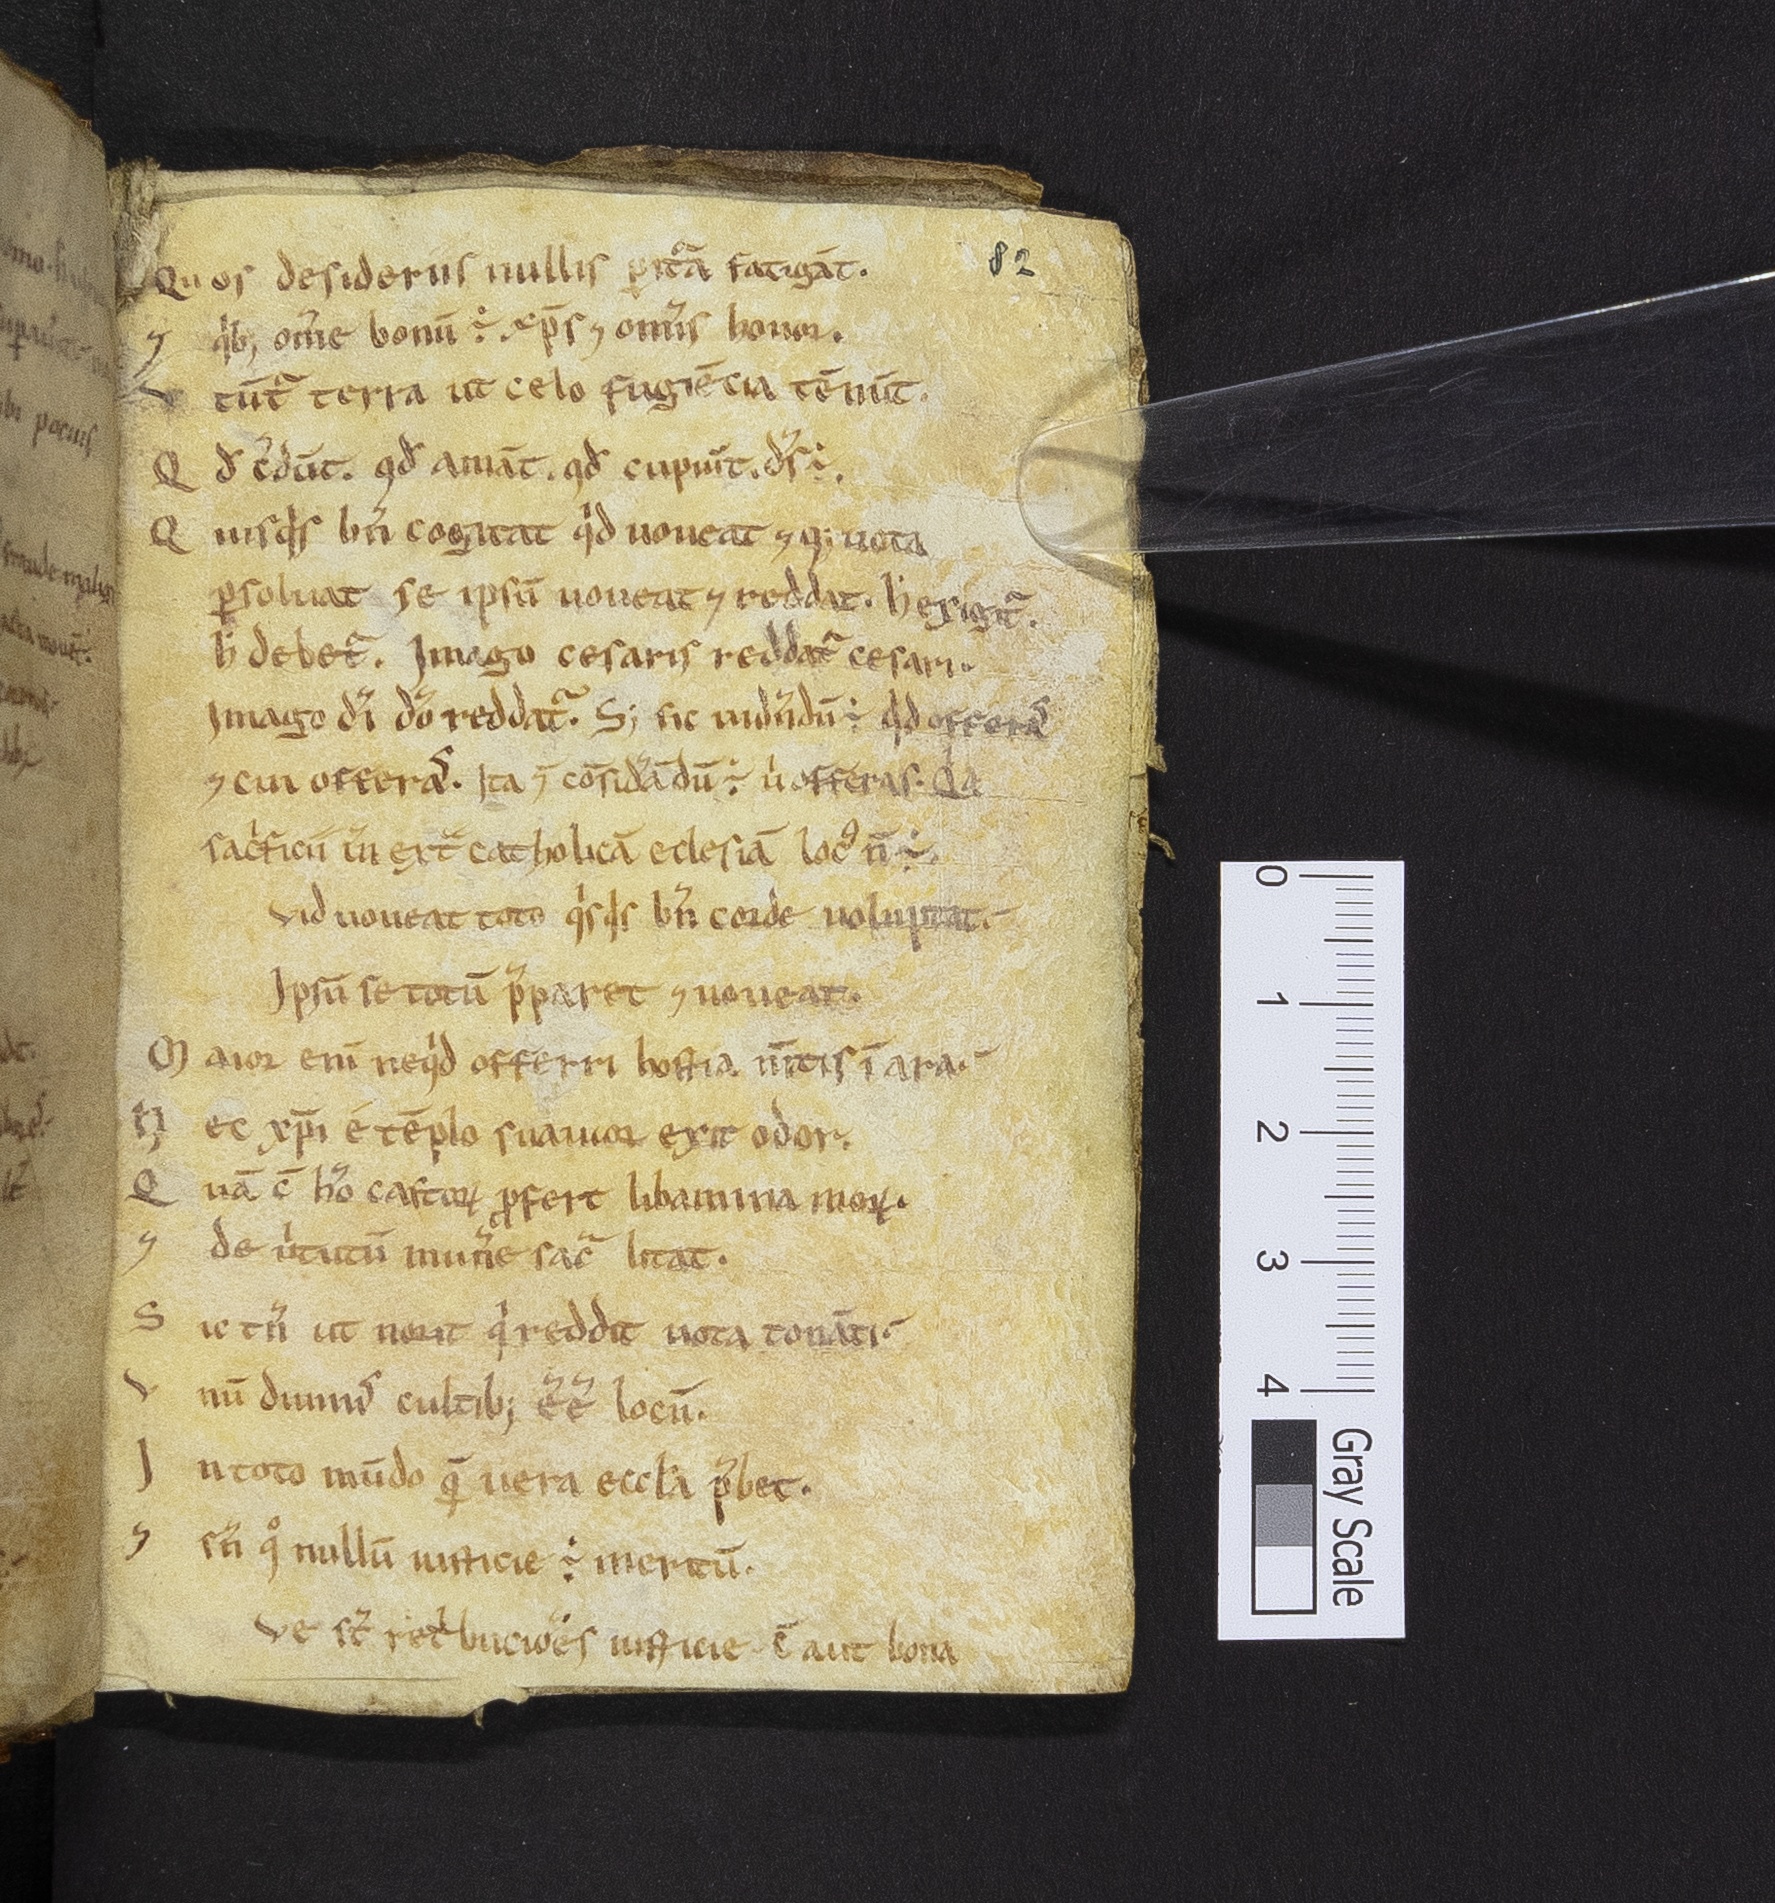 82
Quos desideriis nullis p̲ituͦra fatigāt.
⁊ qͥbȝ om̄e bonū ÷ xp̄s ⁊ om̄is honor.
V tūt᷑ terra ut celo fugiēcia tēnūt.
Q d̄ c̄dūt. qd̄ amāt. qd̄ cupiūt. d̄s ÷.
Q uisqͥs bn̄ cogitat qͥd uoueat ⁊ qͥ uota
ꝑsoluat se ipsū uoueat ⁊ reddat. h̄ exigit᷑.
h̄ debet᷑. Imago cesaris reddat᷑ cesari.
Imago dī dō reddat᷑. S; sic uidn̄dū ÷ qͥd offeras
⁊ cui offeras. Ita ⁊ cōsidāndū ÷ uͥ offeras. Qͥa
sacͥficiū ūi ext᷑ catholicā eclesiā locꝰ n̄ ÷.
Vid uoueat toto qͥsqͥs bn̄ corde uoluptat.
Ipsū se totū p̄paret ⁊ uoueat.
M aior enī neqͥd offerri hostia m̄tis ī ara.
N ec xp̄i é tēplo suauior exit odor.
Q uā c̄ hō castoꝝ ꝓfert libamina moꝝ.
⁊ de uͥtutū mun̄e sac᷑ litat.
S ic tn̄ ut norit qͥ reddit uota tonāti
V nū diuinis cultibȝ ēē locū.
I n toto mūdo q̄ uera eccl̄a p̄bet.
⁊ sn̄ qͦ nullū iusticie ÷ meritū.
Ve st᷑ retͥbucioēs iusticie c̄ aut bona
0 1 2 3 4
Gray Scale